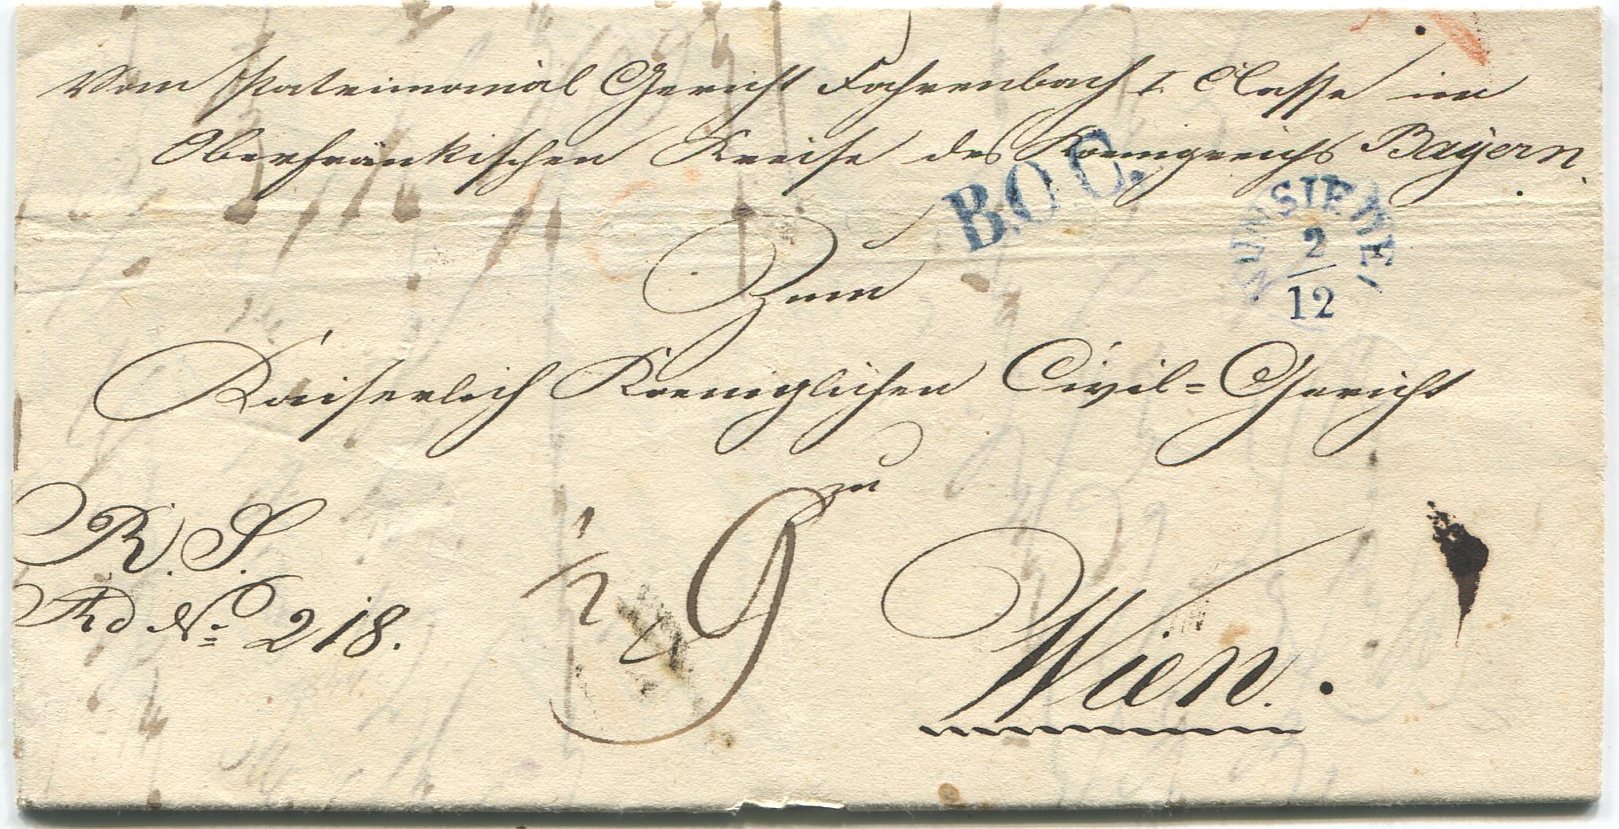 Vom Patrimonial Gericht Fahrenbach I. Classe im
Oberfränkischen Kreise des Koenigreichs Bayern.
B.O.C.
WUNSIEDEL
2
12
Zum
Kaiserlich Koeniglichen Civil=Gericht
zu
R. S.
Ad No 218.
1/2
9
Wien.